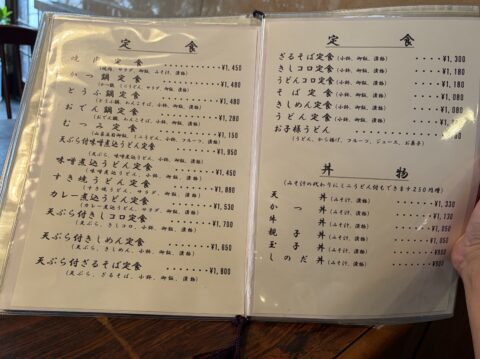 定食
定食 ¥1,450
かつ鍋定食 ¥1,480
とうふ鍋定食 ¥1,480
おでん鍋定食 ¥1,280
むつみ定食 ¥1,150
天ぷら付味噌煮込うどん定食 ¥1,950
味噌煮込うどん定食 ¥1,450
すき焼うどん定食 ¥1,880
カレー煮込うどん定食 ¥1,530
天ぷら付きしコロ定食 ¥1,700
天ぷら付きしめん定食 ¥1,650
(天ぷら、きしめん、小鉢、御飯、漬物)
天ぷら付ざるそば定食 ¥1,800
(天ぷら、ざるそば、小鉢、御飯、漬物)
定食
ざるそば定食(小鉢、御飯、漬物) ¥1,300
きしコロ定食(小鉢、御飯、漬物) ¥1,180
うどんコロ定食(小鉢、御飯、漬物) ¥1,180
そば定食(小鉢、御飯、漬物) ¥1,080
きしめん定食(小鉢、御飯、漬物) ¥1,080
うどん定食(小鉢、御飯、漬物)
お子様うどん
(うどん、から揚げ、フルーツ、ジュース、お菓子)
丼物
(みそ汁の代わりにミニうどん付もできます250円増)
天丼(みそ汁、漬物) ¥1,330
かつ丼(みそ汁、漬物) ¥1,130
牛丼(みそ汁、漬物)
親子丼(みそ汁、漬物)
玉子丼(みそ汁、漬物)
しのだ丼(みそ汁、漬物)